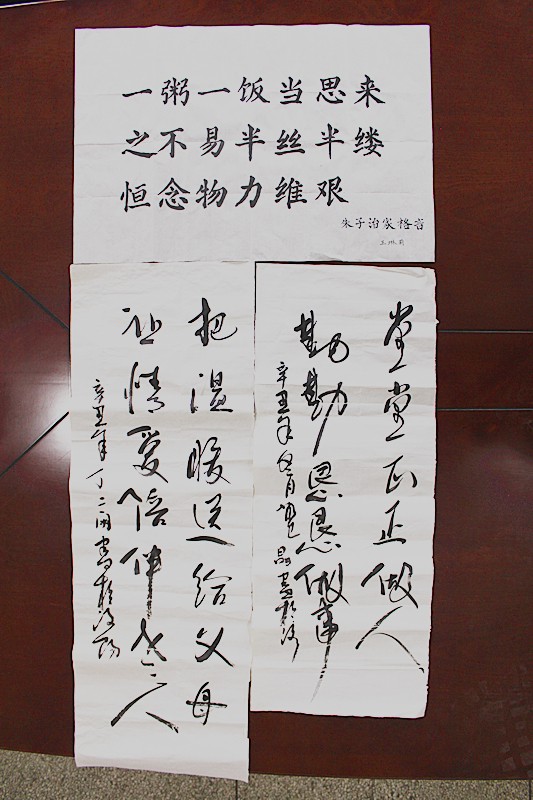 一粥一饭当思来
之不易半丝半缕
恒念物力维艰
朱子治家格言
堂堂正正做人
勤勤恳恳做事
辛丑年 月 书於洛
把温暖送给父母
让情爱陪伴老人
辛丑年丁二 书於洛阳